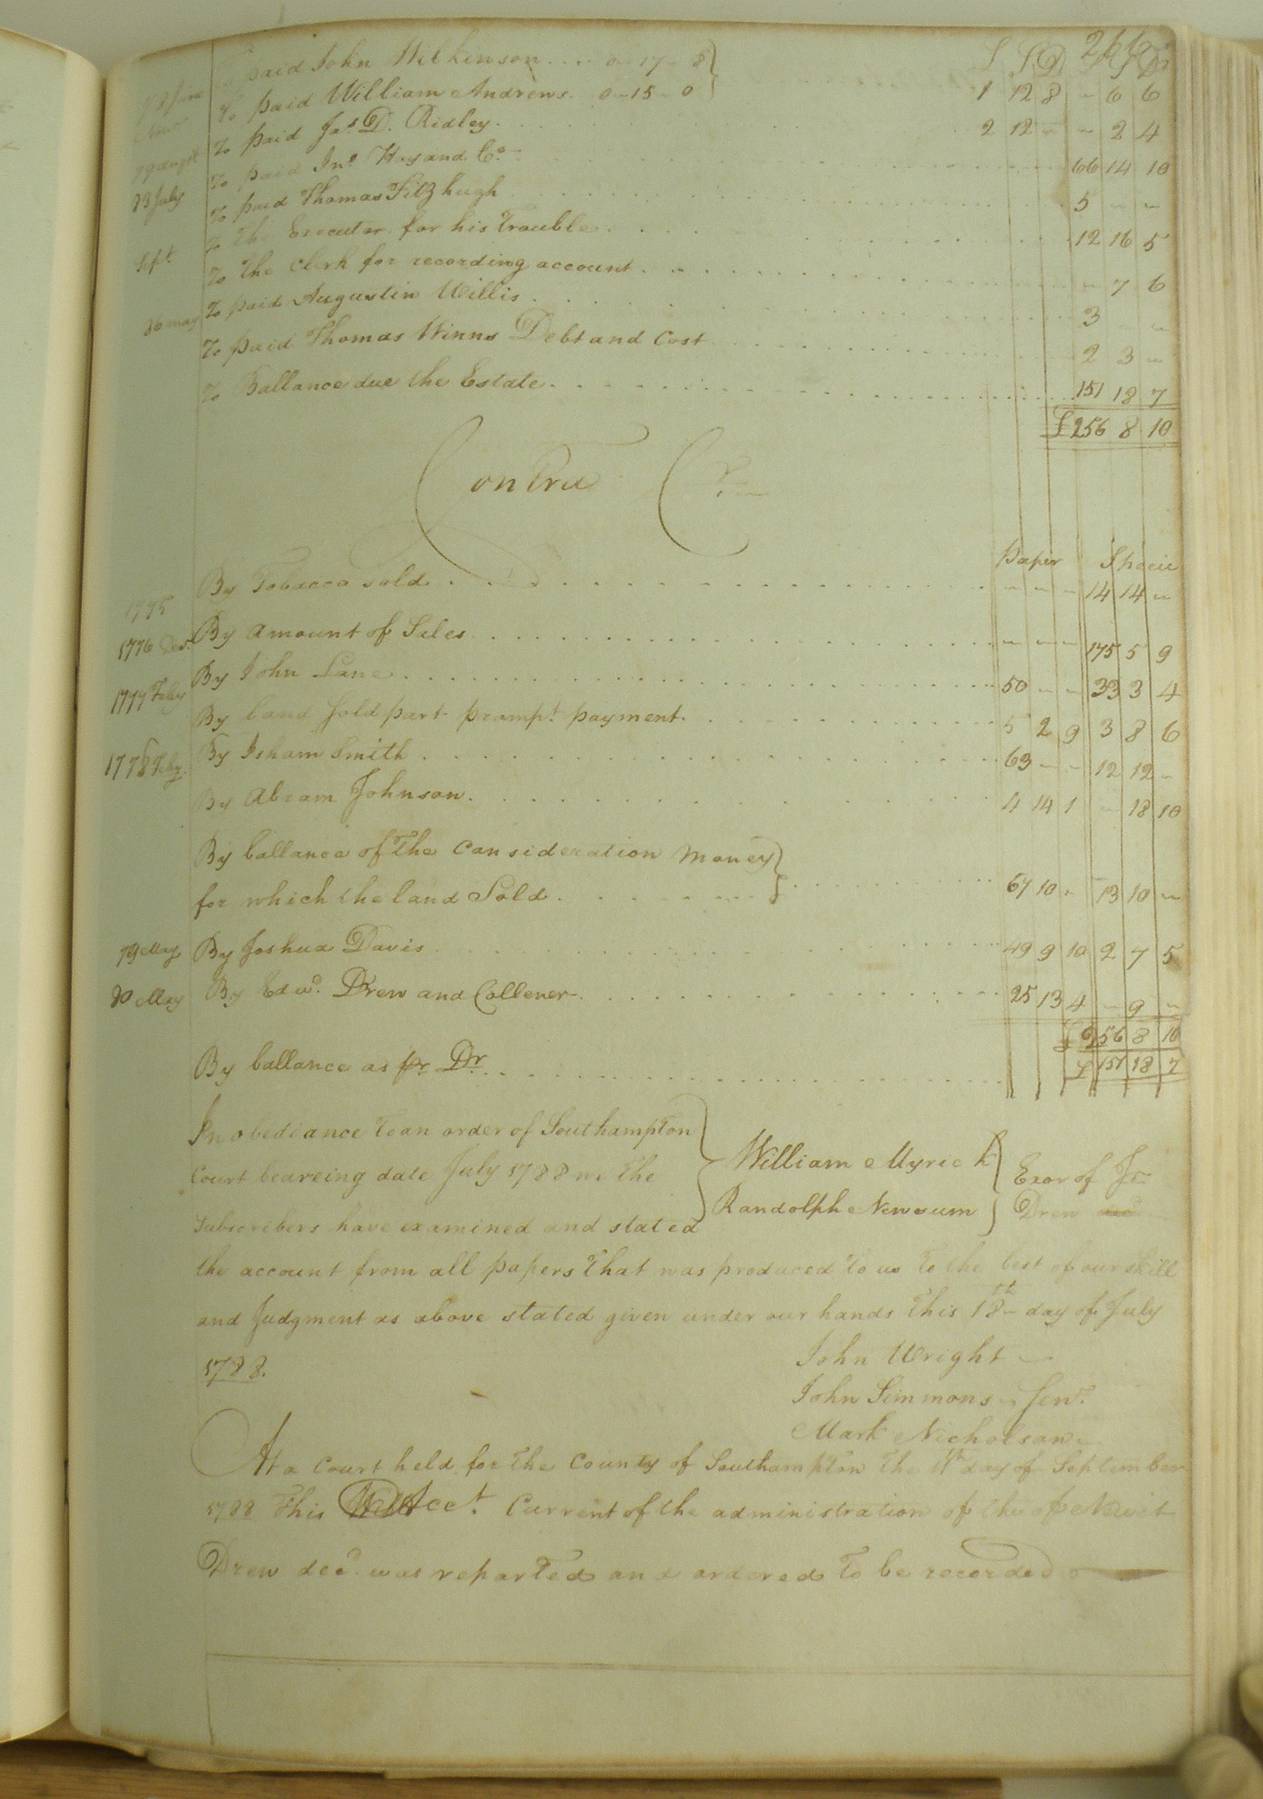 266
£ S D £ S D
78 June To paid John Wilkinson .... 0-17-8
To paid William Andrews. 0-15-0 1 12 8 - 6 6
To paid Jas D. Ridley. 2 12 - - 2 4
79 augst To paid Jno Hay and Co 66 14 10
23 July To paid Thomas Fitzhugh 5 - -
To the Executor for his Trouble 12 16 5
Sept To the Clerk for recording account 7 6
26 may To paid Augustin Willis 3 -
To paid Thomas Winns Debt and Cost 2 3 -
To Ballance due the Estate 151 18 7
£256 8 10
Contra Cr
Paper Specie
1775 By Tobacco Sold - - - 14 14 -
1776 Decr By amount of Sales - - - 175 5 9
1777 Feby By John Lane 50 - - 33 3 4
By land Sold part prompt payment. 5 2 9 3 8 6
1778 Feby By Isham Smith 63 - - 12 12 -
By Abram Johnson. 4 14 1 - 18 10
By ballance of The Consideration Money
for which the land Sold 67 10 - 13 10 -
79 May By Joshua Davis 49 9 10 2 7 5
80 May By Edwd. Drew and Collener 25 13 4 - 9 -
£256 8 10
By ballance as pr Dr. £151 18 7
In obediance to an order of Southampton
Court beareing date July 1788 we the William Myrick Exor of
Subscribers have examined and stated Randolph Newsum Drew decd
the account from all papers that was produced to us to the best of our skill
and Judgment as above stated given under our hands this 18th day of July
1788.
John Wright
John Simmons Senr
Mark Nicholson
At a Court held for the County of Southampton the 11th day of September
1788 This Acct. Current of the administration of the of Newit
Drew decd was reported and ordered to be recorded